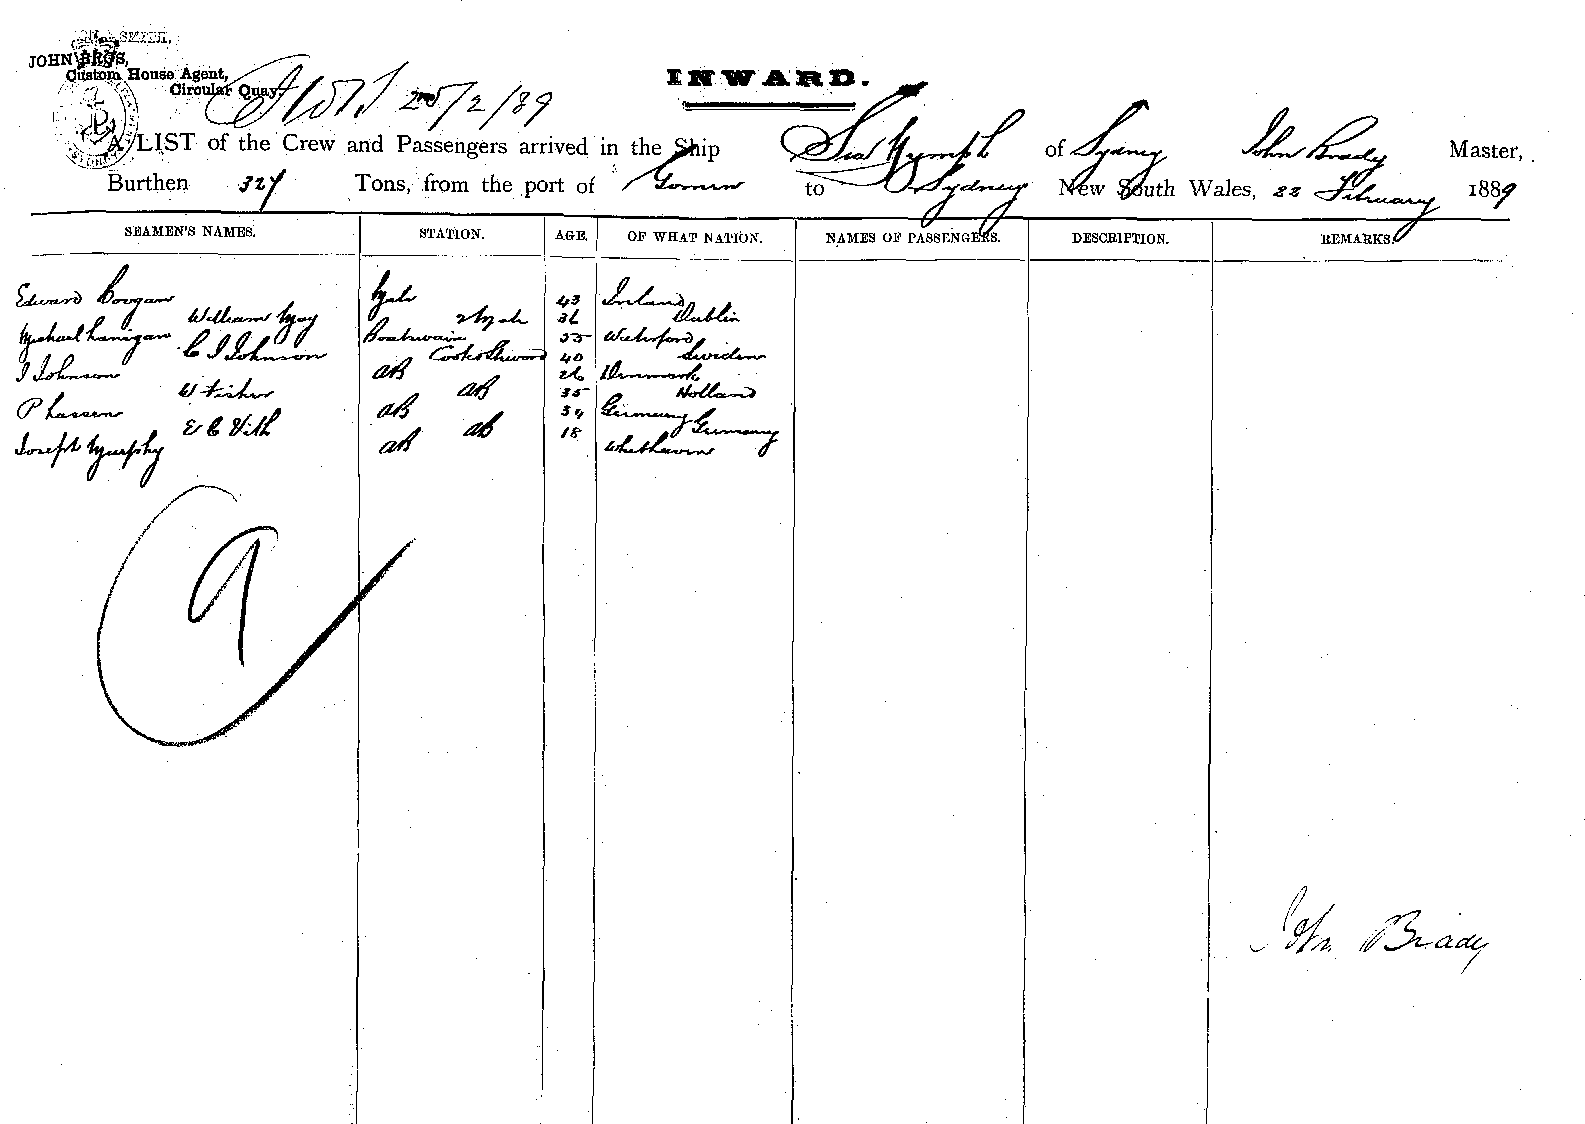 SMITH,
JOHN BROS,
Custom House Agent,
Circular Quay
INWARD.
25/2/89
A LIST of the Crew and Passengers arrived in the Ship Sea Nymph of Sydney John Brady Master,
Burthen 327 Tons, from the port of to Sydney New South Wales, 22 February 1889
SEAMEN'S NAMES. STATION. AGE. OF WHAT NATION. NAMES OF PASSENGERS. DESCRIPTION. REMARKS.
Edward Mate 43 Ireland
William May 2 Mate 36 Dublin
Michael Lanigan Boatswain 55 Waterford
C J Johnson Cook & Steward 40 Sweden
J Johnson AB 26 Denmark
W Fisher AB 35 Holland
P Lassen AB 34 Germany
E C Vith AB 18 Germany
Joseph Murphy AB Whithaven
9
John Brady